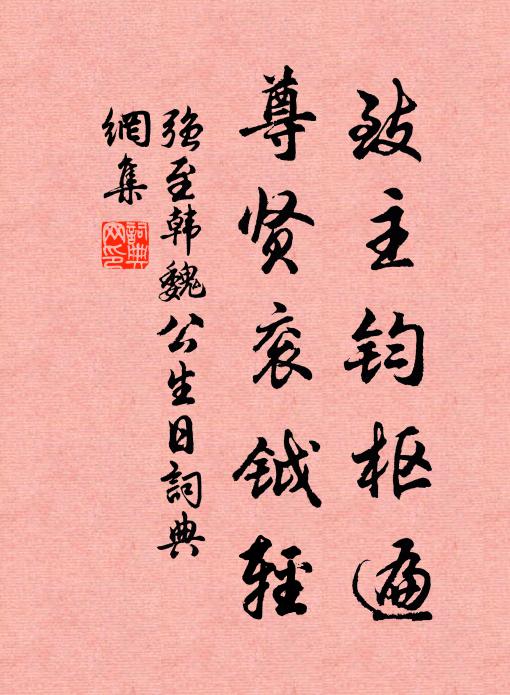 致主钧枢遍
尊贤衮钺轻
强至韩魏公生日詞典
網集
詞典网印